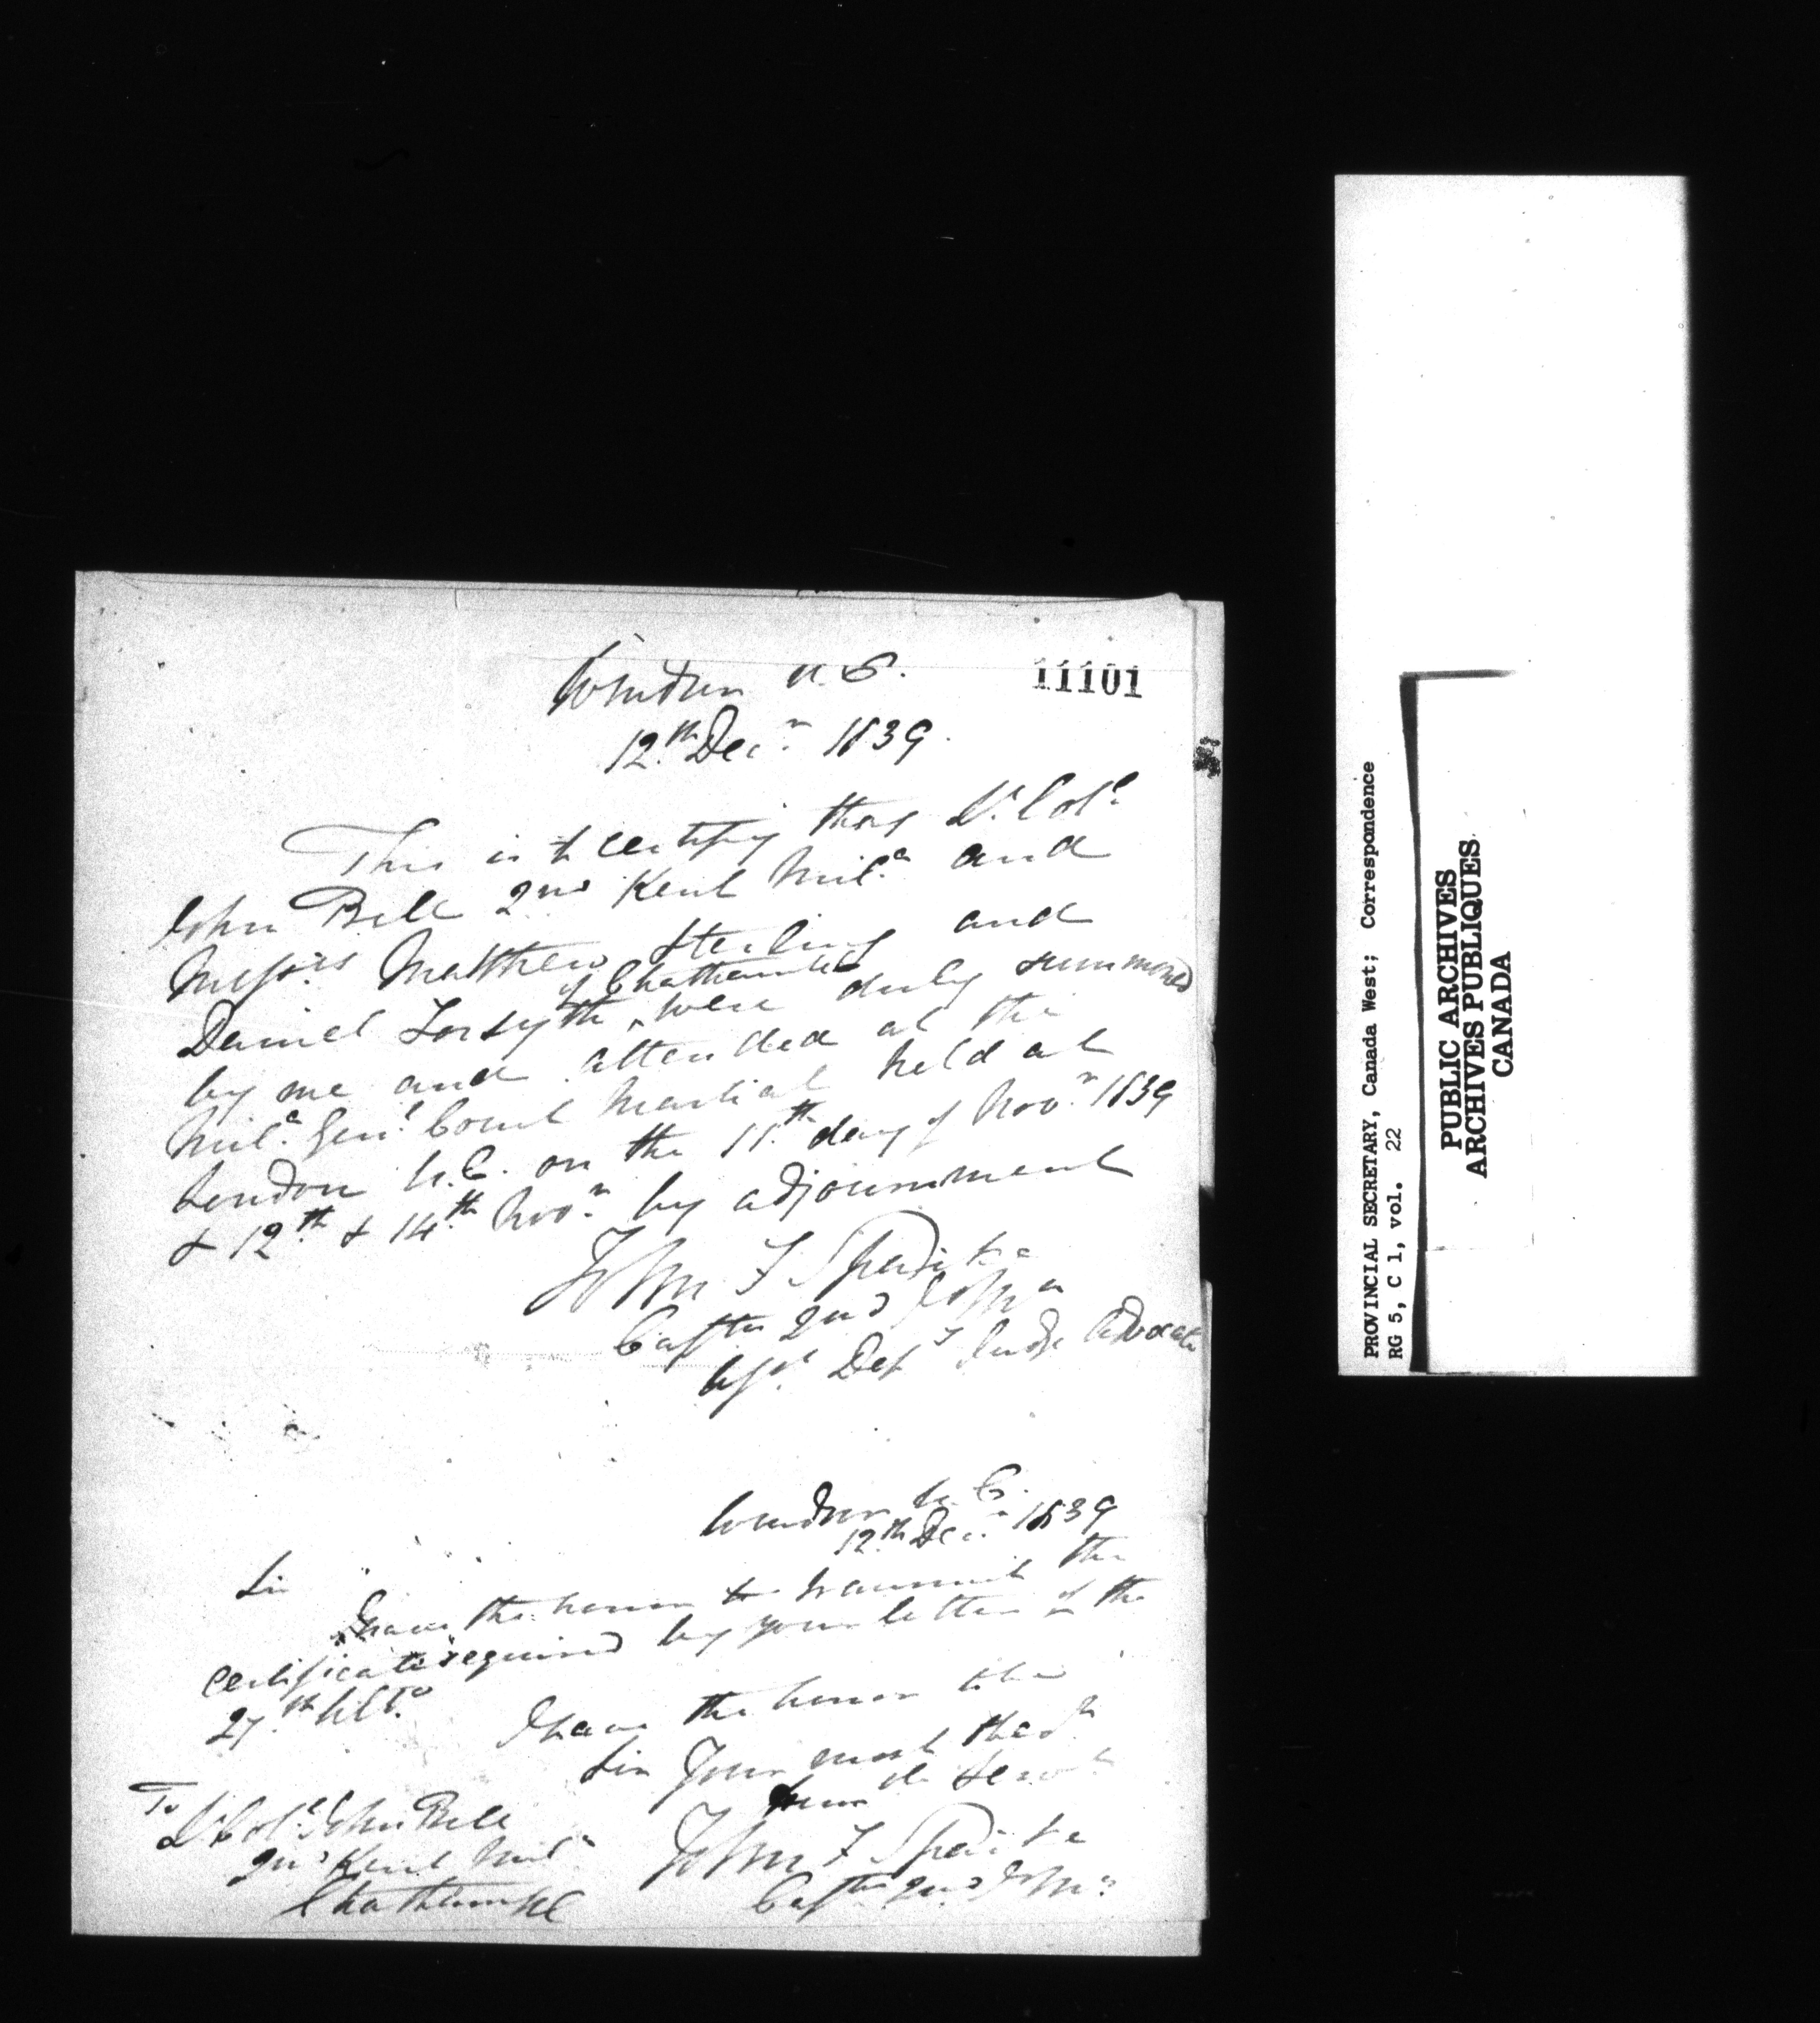 Windsor U.C.
11101
12th Decr 1839
This is to certify that Lt Col
John Bell 2nd Kent Mila and
Messrs Matthew Sterling and
of Chatham UC
Daniel Forsyth, were duly summoned
by me and attended at the
Mila Genl Court Martial held at
London U.C. on the 11th day of Novr 1839
& 12th & 14th Novr by adjournment
John F Sparke
Captn 2nd
Depy Judge Advocate
Windsor U.C.
12th Decr 1839
Sir
I have the honor to transmit the
certificate required by your letter of the
27th Ulto
I have the honor to be
Sir Your most Obedt
hum Servt
To
Lt Col John Bell
2nd Kent Mila
Chatham UC
John F Sparke
Captn 2nd
PROVINCIAL SECRETARY, Canada West; Correspondence
RG 5, C 1, vol. 22
PUBLIC ARCHIVES
ARCHIVES PUBLIQUES
CANADA